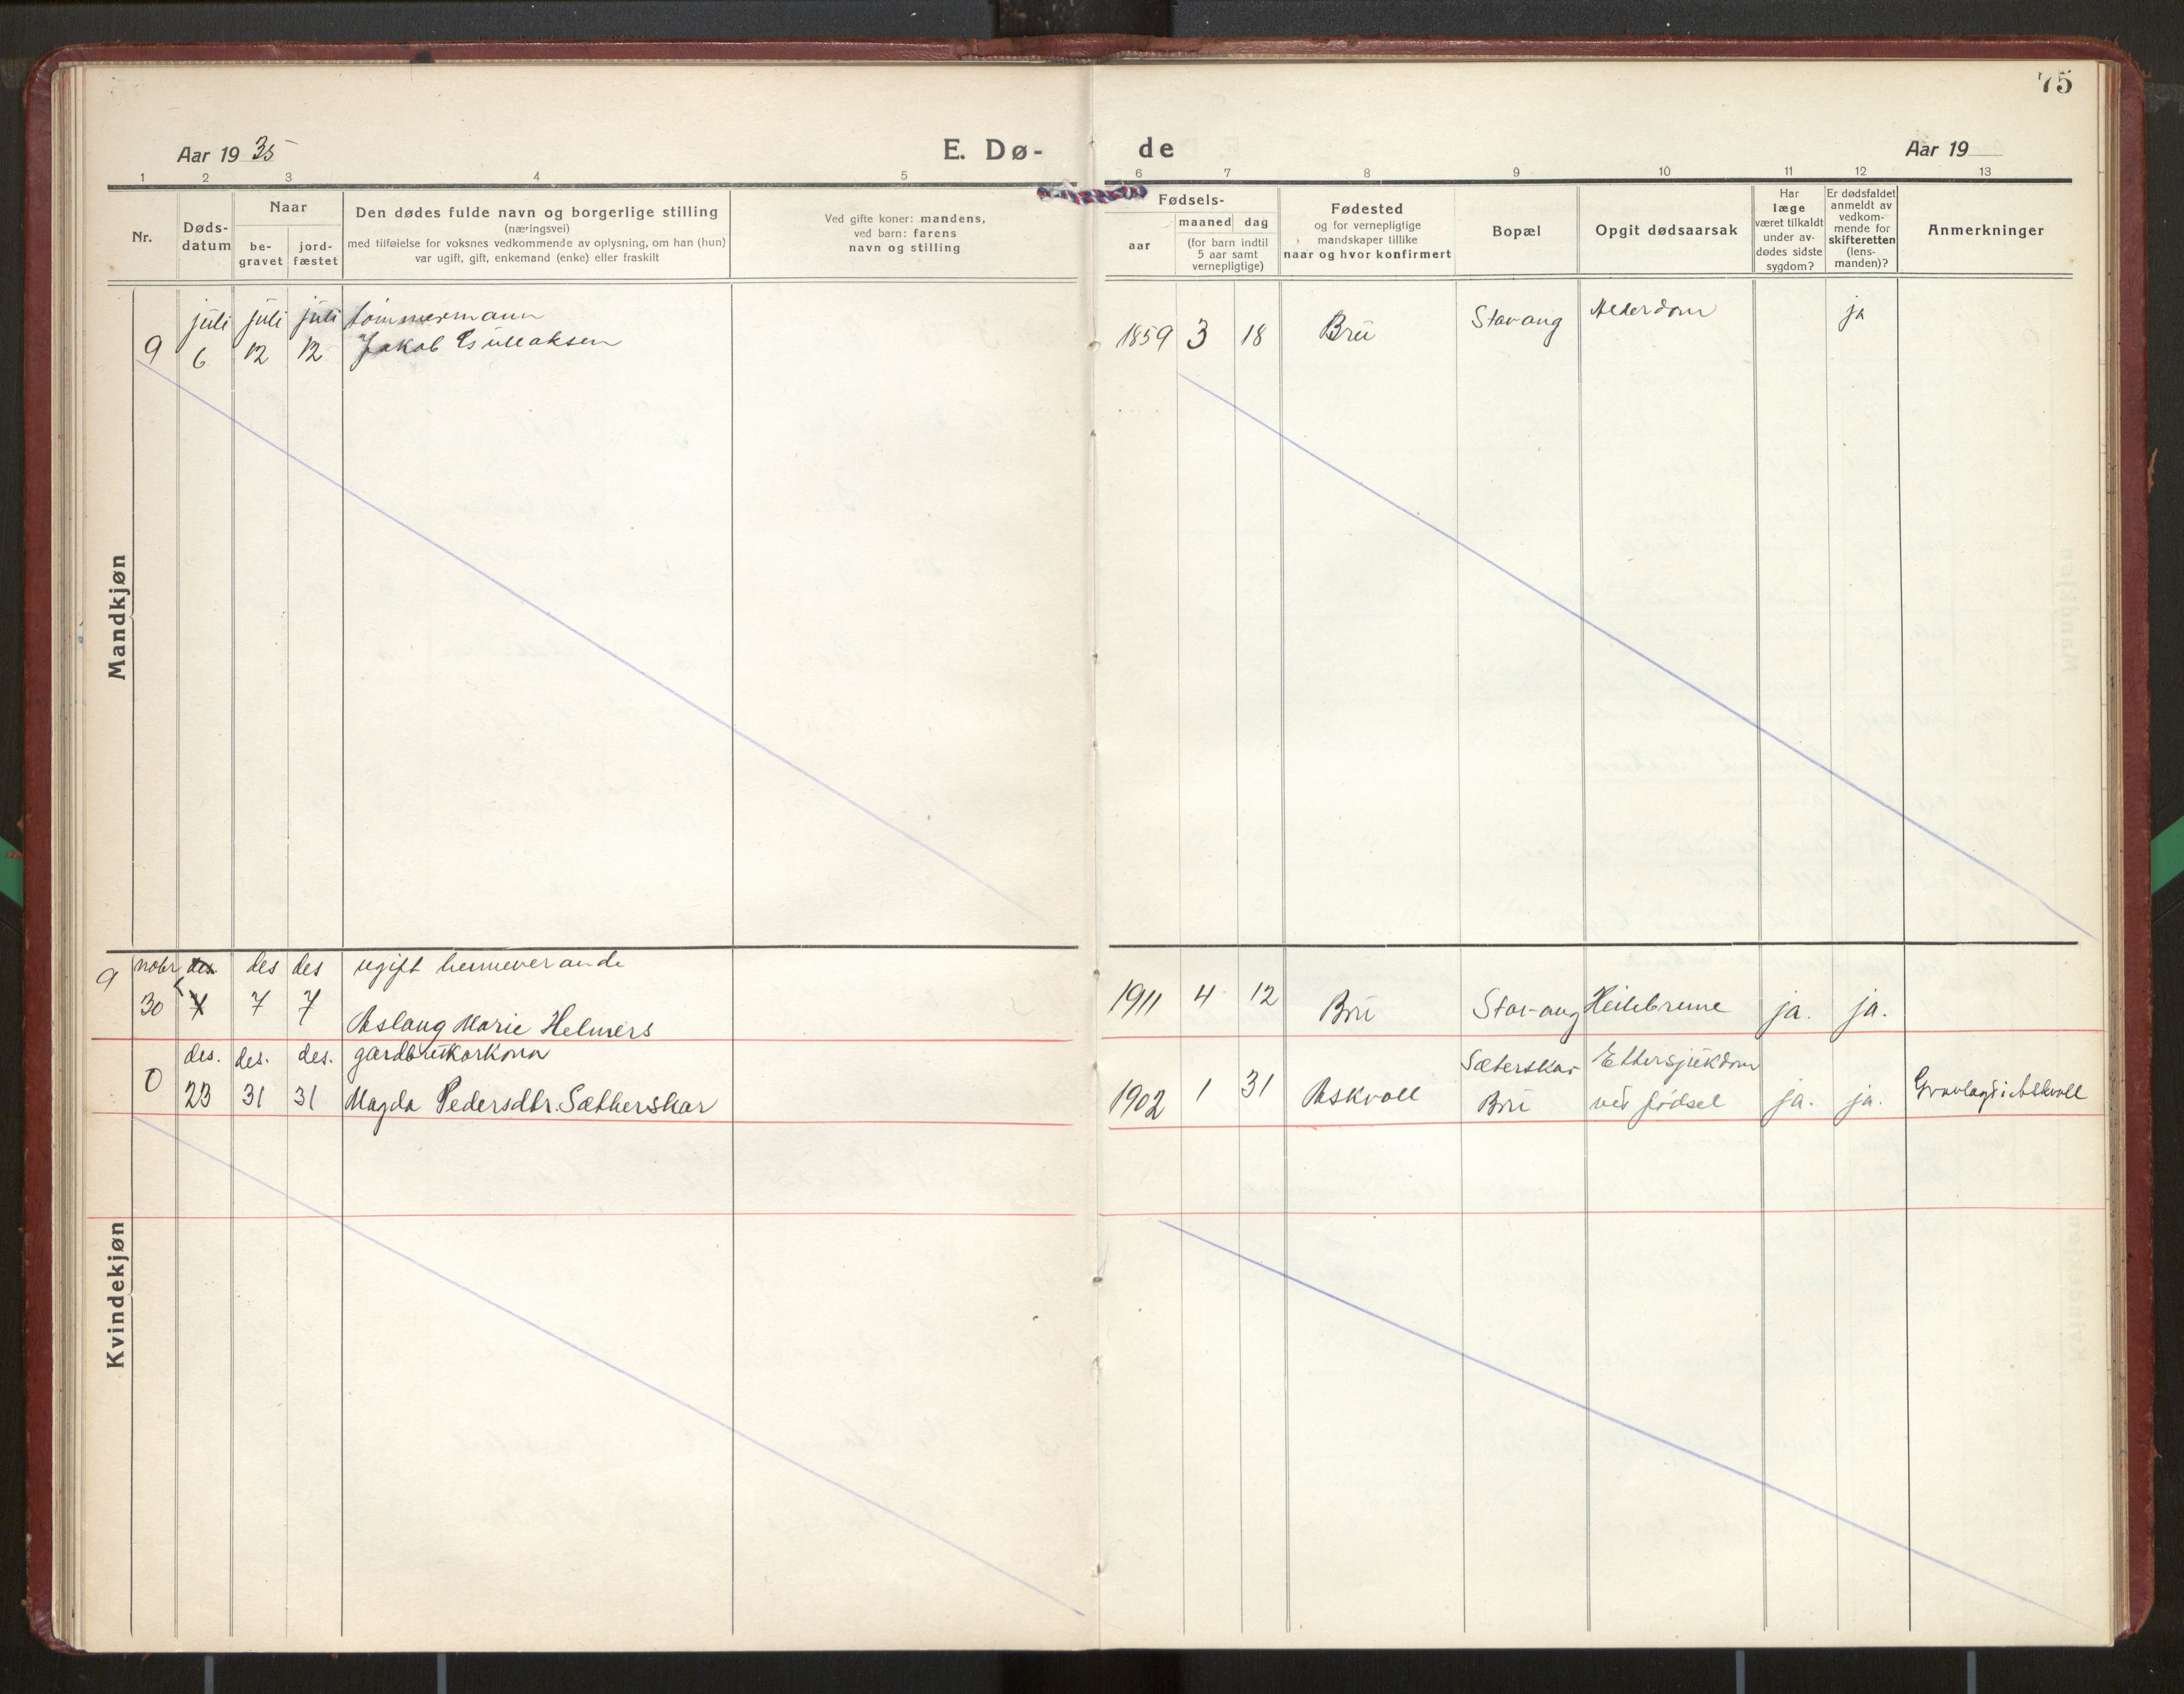 75
Aar 19 35
E. Dø-
de
Aar 19
1 2 3 4 5 6 7 8 9 10 11 12 13
Nr.
Døds-
datum
Naar
be-
gravet
jord-
fæstet
Den dødes fulde navn og borgerlige stilling
(næringsvei)
med tilføielse for voksnes vedkommende av oplysning, om han (hun)
var ugift, gift, enkemand (enke) eller fraskilt
Ved gifte koner: mandens,
ved barn: farens
navn og stilling
Fødsels-
aar
maaned dag
(for barn indtil
5 aar samt
vernepligtige)
Fødested
og for vernepligtige
mandskaper tillike
naar og hvor konfirmert
Bopæl
Opgit dødsaarsak
Har
læge
været tilkaldt
under av-
dødes sidste
sygdom?
Er dødsfaldet
anmeldt av
vedkom-
mende for
skifteretten
(lens-
manden)?
Anmerkninger
Mandkjøn
juli juli juli tømmermann
9 6 12 12 Jakob
1859 3 18 Bru Stavang Alderdom ja
Kvindekjøn
9 novbr des des des ugift heimeverande
30 7 7 7 Aslaug Marie Helmers
1911 4 12 Bru Stavang ja. ja.
des. des. des. gardbrukarkona
0 23 31 31 Magda Pedersdtr. Sætherskar
1902 1 31 Askvoll
Sæterskar
Bru
Ettersjukdom
ved fødsel
ja. ja. Gravlagt i Askvoll